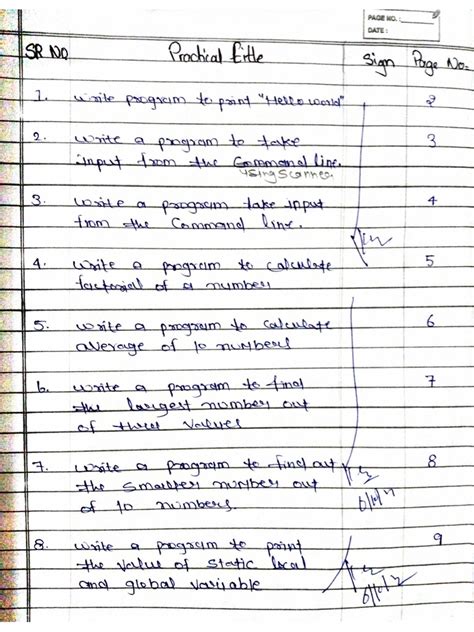 PAGE NO.:
DATE:
SR NO Practical Title Sign Page No.
1. write program to print "Hello world" 2
2. write a program to take 3
input from the Command line.
using Scanner.
3. write a program take input 4
from the Command line.
4. write a program to calculate 5
factorial of a number
5. write a program to calculate 6
average of 10 numbers
6. write a program to find 7
the largest number out
of three values
7. write a program to find out 8
the smaller number out
of 10 numbers.
8. write a program to print 9
the value of static local
and global variable